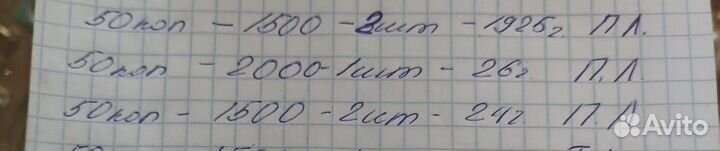 50коп - 1500 - 2шт - 1925г. П.Л.
50коп - 2000 - 1шт - 26г. П.Л.
50коп - 1500 - 2шт - 24г. П.Л.
Avito